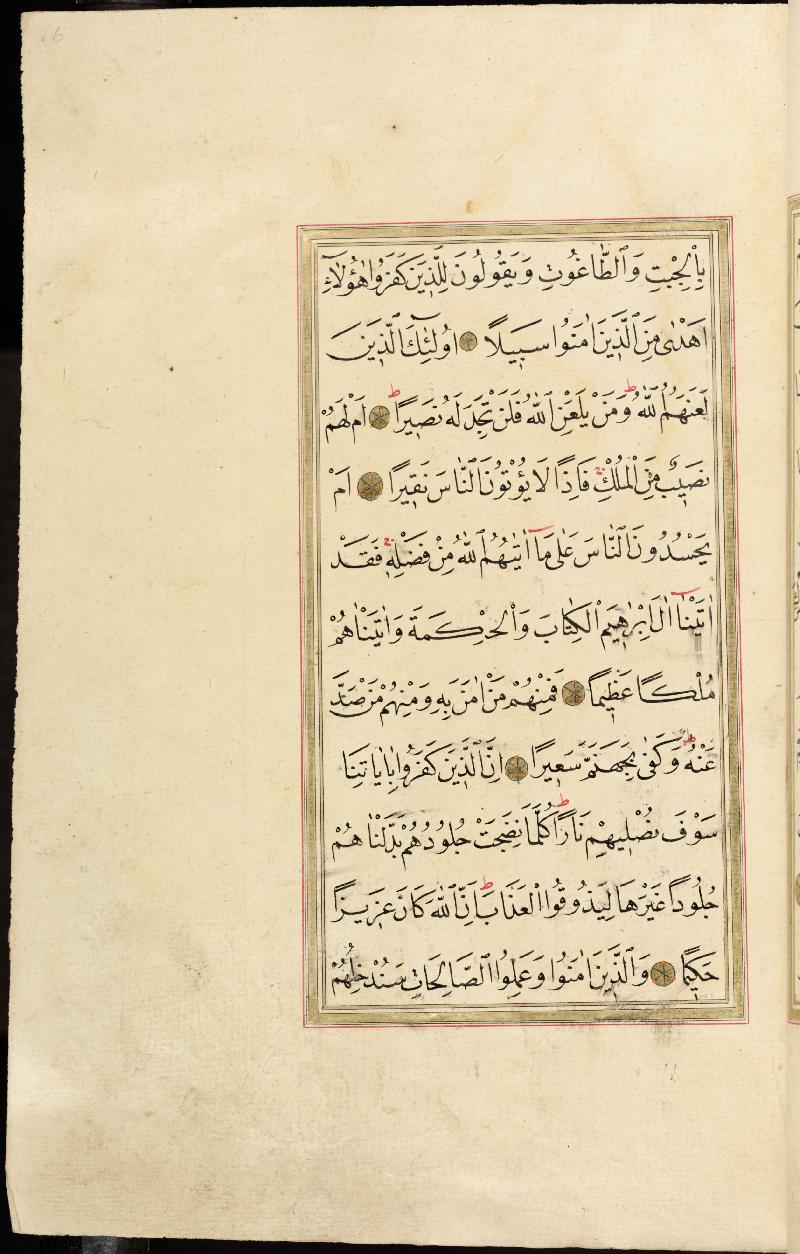 بِالْجِبْتِ وَالطَّاغُوتِ وَيَقُولُونَ لِلَّذِينَ كَفَرُوا هٰؤُلَاءِ
اَهْدٰى مِنَ الَّذِينَ اٰمَنُوا سَبِيلًا ۝ اُولٰئِكَ الَّذِينَ
لَعَنَهُمُ اللّٰهُ ط وَمَنْ يَلْعَنِ اللّٰهُ فَلَنْ تَجِدَ لَهُ نَصِيرًا ط ۝ اَمْ لَهُمْ
نَصِيبٌ مِنَ الْمُلْكِ فَاِذًا لَا يُؤْتُونَ النَّاسَ نَقِيرًا ۝ اَمْ
يَحْسُدُونَ النَّاسَ عَلٰى مَا اٰتٰيهُمُ اللّٰهُ مِنْ فَضْلِهِ فَقَدْ
اٰتَيْنَا اٰلَ اِبْرٰهِيمَ الْكِتَابَ وَالْحِكْمَةَ وَاٰتَيْنَاهُمْ
مُلْكًا عَظِيمًا ۝ فَمِنْهُمْ مَنْ اٰمَنَ بِهِ وَمِنْهُمْ مَنْ صَدَّ
عَنْهُ ط وَكَفٰى بِجَهَنَّمَ سَعِيرًا ۝ اِنَّ الَّذِينَ كَفَرُوا بِاٰيَاتِنَا
سَوْفَ نُصْلِيهِمْ نَارًا ط كُلَّمَا نَضِجَتْ جُلُودُهُمْ بَدَّلْنَاهُمْ
جُلُودًا غَيْرَهَا لِيَذُوقُوا الْعَذَابَ ط اِنَّ اللّٰهَ كَانَ عَزِيزًا
حَكِيمًا ۝ وَالَّذِينَ اٰمَنُوا وَعَمِلُوا الصَّالِحَاتِ سَنُدْخِلُهُمْ